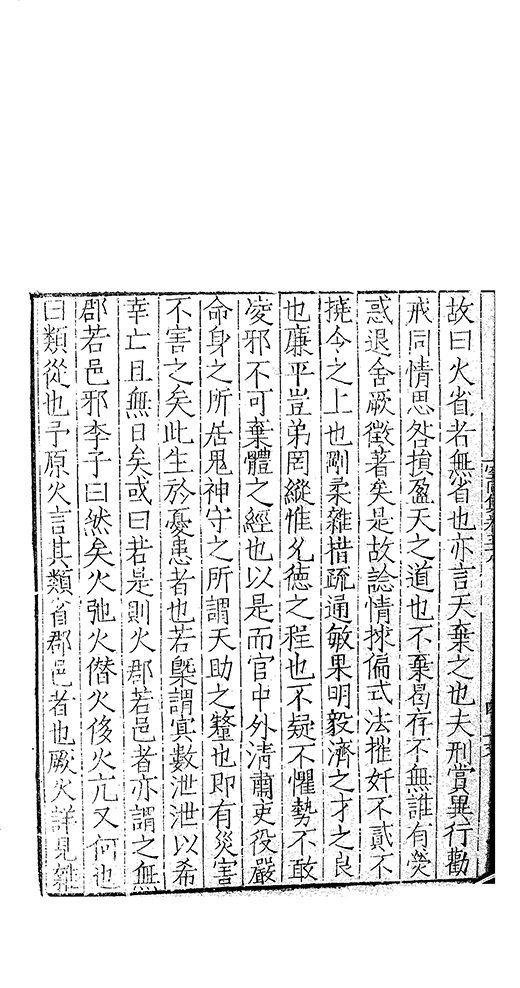 故曰火省若無省也亦言天棄之也夫刑賞異行勸
戒同情思咎損盈天之道也不棄曷存不無誰有熒
惑退舍厥徵著矣是故諗情捄偏式法摧奸不貳不
撓今之上也剛柔雜措疏通敏果明毅濟之才之良
也廉平豈弟罔縱惟允德之程也不疑不懼勢不敢
凌邪不可棄體之經也以是而官中外淸肅吏役嚴
命身之所居鬼神守之所謂天助之釐也即有災害
不害之矣此生於憂患者也若槩謂㝠數泄泄以希
幸亡且無日矣或曰若是則火郡若邑者亦謂之無
郡若邑邪李子曰然矣火弛火僭火侈火亢又何也
曰類從也予原火言其類省郡邑者也厥火詳見雜
空同集卷五九